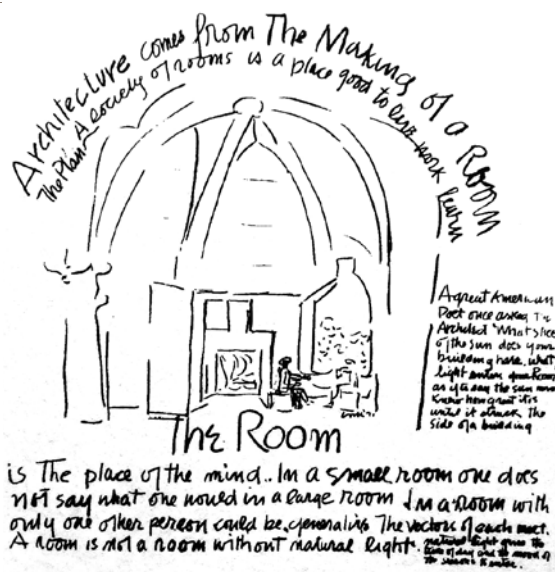 Architecture comes from The Making of a Room
The Plan A society of rooms is a place good to live work learn
A great American
Poet once asked The
Architect "What slice
of the sun does your
building have. What
light enters your Room
as if to say the sun never
knew how great it is
until it struck the
side of a building
The Room
is The place of the mind.. In a small room one does
not say what one would in a large room In a room with
only one other person could be generative The vectors of each meet.
A room is not a room without natural light.
natural light gives the
time of day and the mood of
the seasons to enter.